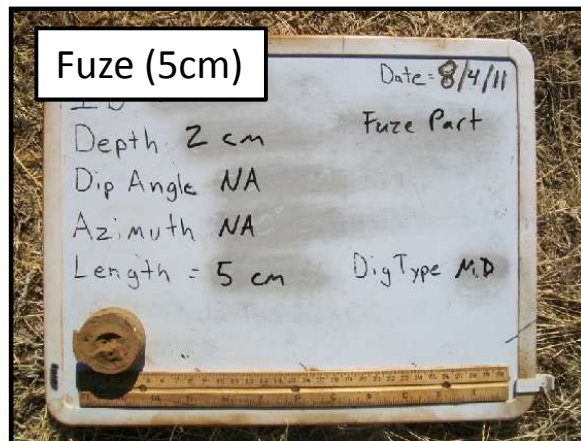 Fuze (5cm)
Date = 8/4/11
Fuze Part
Depth: 2 cm
Dip Angle NA
Azimuth NA
Length = 5 cm
Dig Type MD